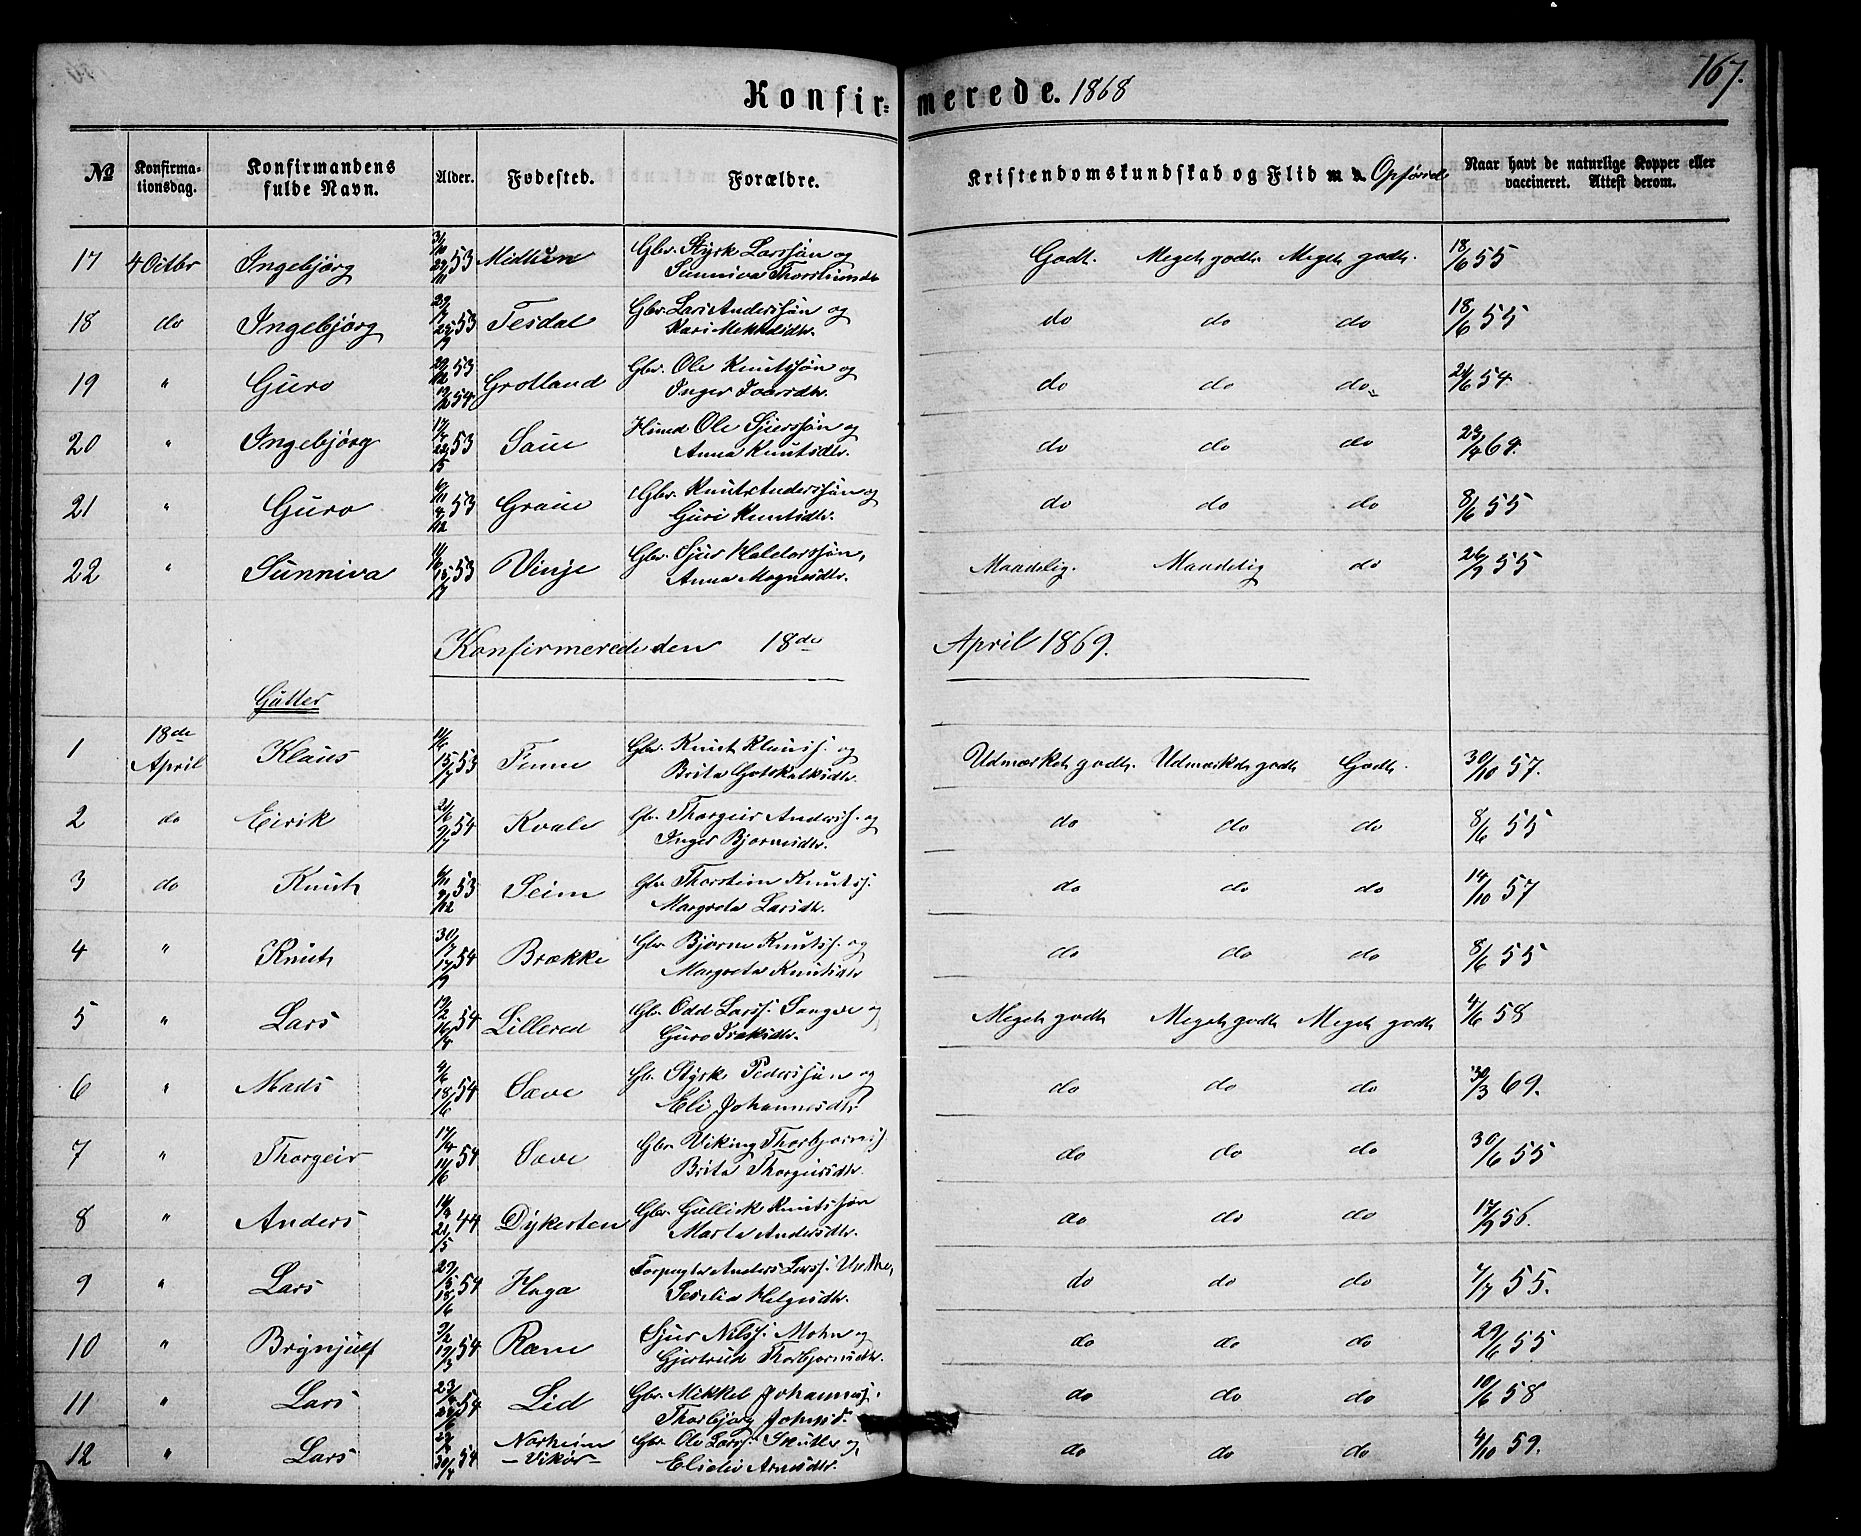 167.
Konfirmerede. 1868
№ Konfirmationsdag. Konfirmandens fulde Navn. Alder. Fødested. Forældre. Kristendomskundskab og Flid m. Opførsel Naar havt de naturlige Kopper eller vaccineret. Attest derom.
17 4 Octbr Ingebjørg 53 Midtun Gbr. Styrk Larssøn og Godt. Meget godt. Meget godt. 18/6 55
Sunniva
18 do Ingebjørg 53 Tesdal Gbr. Lars Anderssøn og do do do 18/6 55
Kari
19 " Guro 29/12 53 Grotland Gbr. Ole Knutssøn og do do do 24/6 54
12/2 54 Inger
20 " Ingebjørg 53 Saue Ole Sjurssøn og do do do
22/5 Anna Knutsdtr.
21 " Guro 6/11 53 Graue Gbr. Knut Anderssøn og do do do 8/6 55
4/12 Guri Knutsdtr.
22 " Sunniva 53 Vinje Gbr. Sjur Haldorssøn, Maadelig. Maadelig do 26/9 55
Anna Magnesdtr.
Konfirmerede den 18de April 1869.
Gutter
1 18de April Klaus 15/7 53 Finne Gbr. Knut Klauss. og Udmærket godt. Udmærket godt Godt. 30/10 57.
Brita Gotskalksdtr.
2 do Eirik 9/7 54 Kvale Gbr. Thorgeir Anderss. og do do do 8/6 55
Inger Bjørnesdtr.
3 do Knut 6/11 53 Seim Gbr. Thorstein Knutss. do do do 14/10 57
9/12 Margreta Larsdtr.
4 " Knut 30/7 54 Brække Gbr. Bjørne Knutss. og do do do 8/6 55
17/9 Margreta Knutsdtr
5 " Lars 54 Lillered Gbr. Odd Larss. og Meget godt Meget godt Meget godt 4/6 58
Guro
6 " Mads 4/6 54 Save Gbr. Styrk Pederssøn og do do do 30/3 69.
18/6 Eli Johannesdtr
7 " Thorgeir 17/4 54 Save Gbr. Viking Thorbjørns. do do do 30/6 55
11/6 Brita Thorgeirsdtr.
8 " Anders 44 Dykesten Gbr. Gullik Knutssøn do do do 17/9 56.
21/5 Marta Andersdtr.
9 " Lars 54 Haga Forpagter Anders Larss. do do do 4/7 55.
18/6 Helgesdtr.
10 " Brynjulf 9/2 54 Ræne Sjur Nilss. Mohn og do do do 29/6 55
19/3 Gjertrud Thorbjørnsdtr.
11 " Lars 54 Lid Gbr. Mikkel Johanness. do do do 10/6 58
Thorbjørg Johnsd.
12 " Lars 54 Norheim Gbr. Ole Larss. Skutle og do do do 4/10 59.
30/4 - Vikør - Arnesdtr.